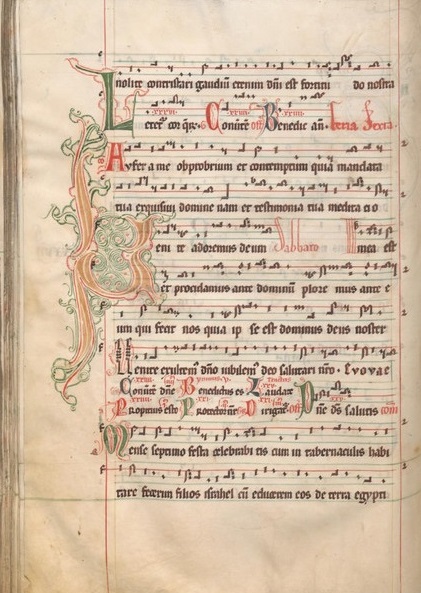 nolite contristari gaudiū etenim dn̄i est fortitu do nostra
Letet͛ cor q̄re. Conūte off Benedic an̄. feria sexta.
Aufer a me obprobrium et contemptum quia mandata
tua exquisiui domine nam et testimonia tua medita ti o
Veni te adoremus deum Sabbato mea est
et procidamus ante dominū plore mus ante e
um qui fecit nos quia ip se est dominus deus noster
Uenite exultem⁹ dn̄o iubilem⁹ deo salutari nr̄o. Evovae
Conūte dn̄e Benedictus es Laudate
Propicius esto Protector nr̄ Dirigat͛ off Dn̄e ds̄ salutis com̄
Mense septimo festa celebrabi tis cum in tabernaculis habi
tare fecerim filios israhel cū educerem eos de terra egypti